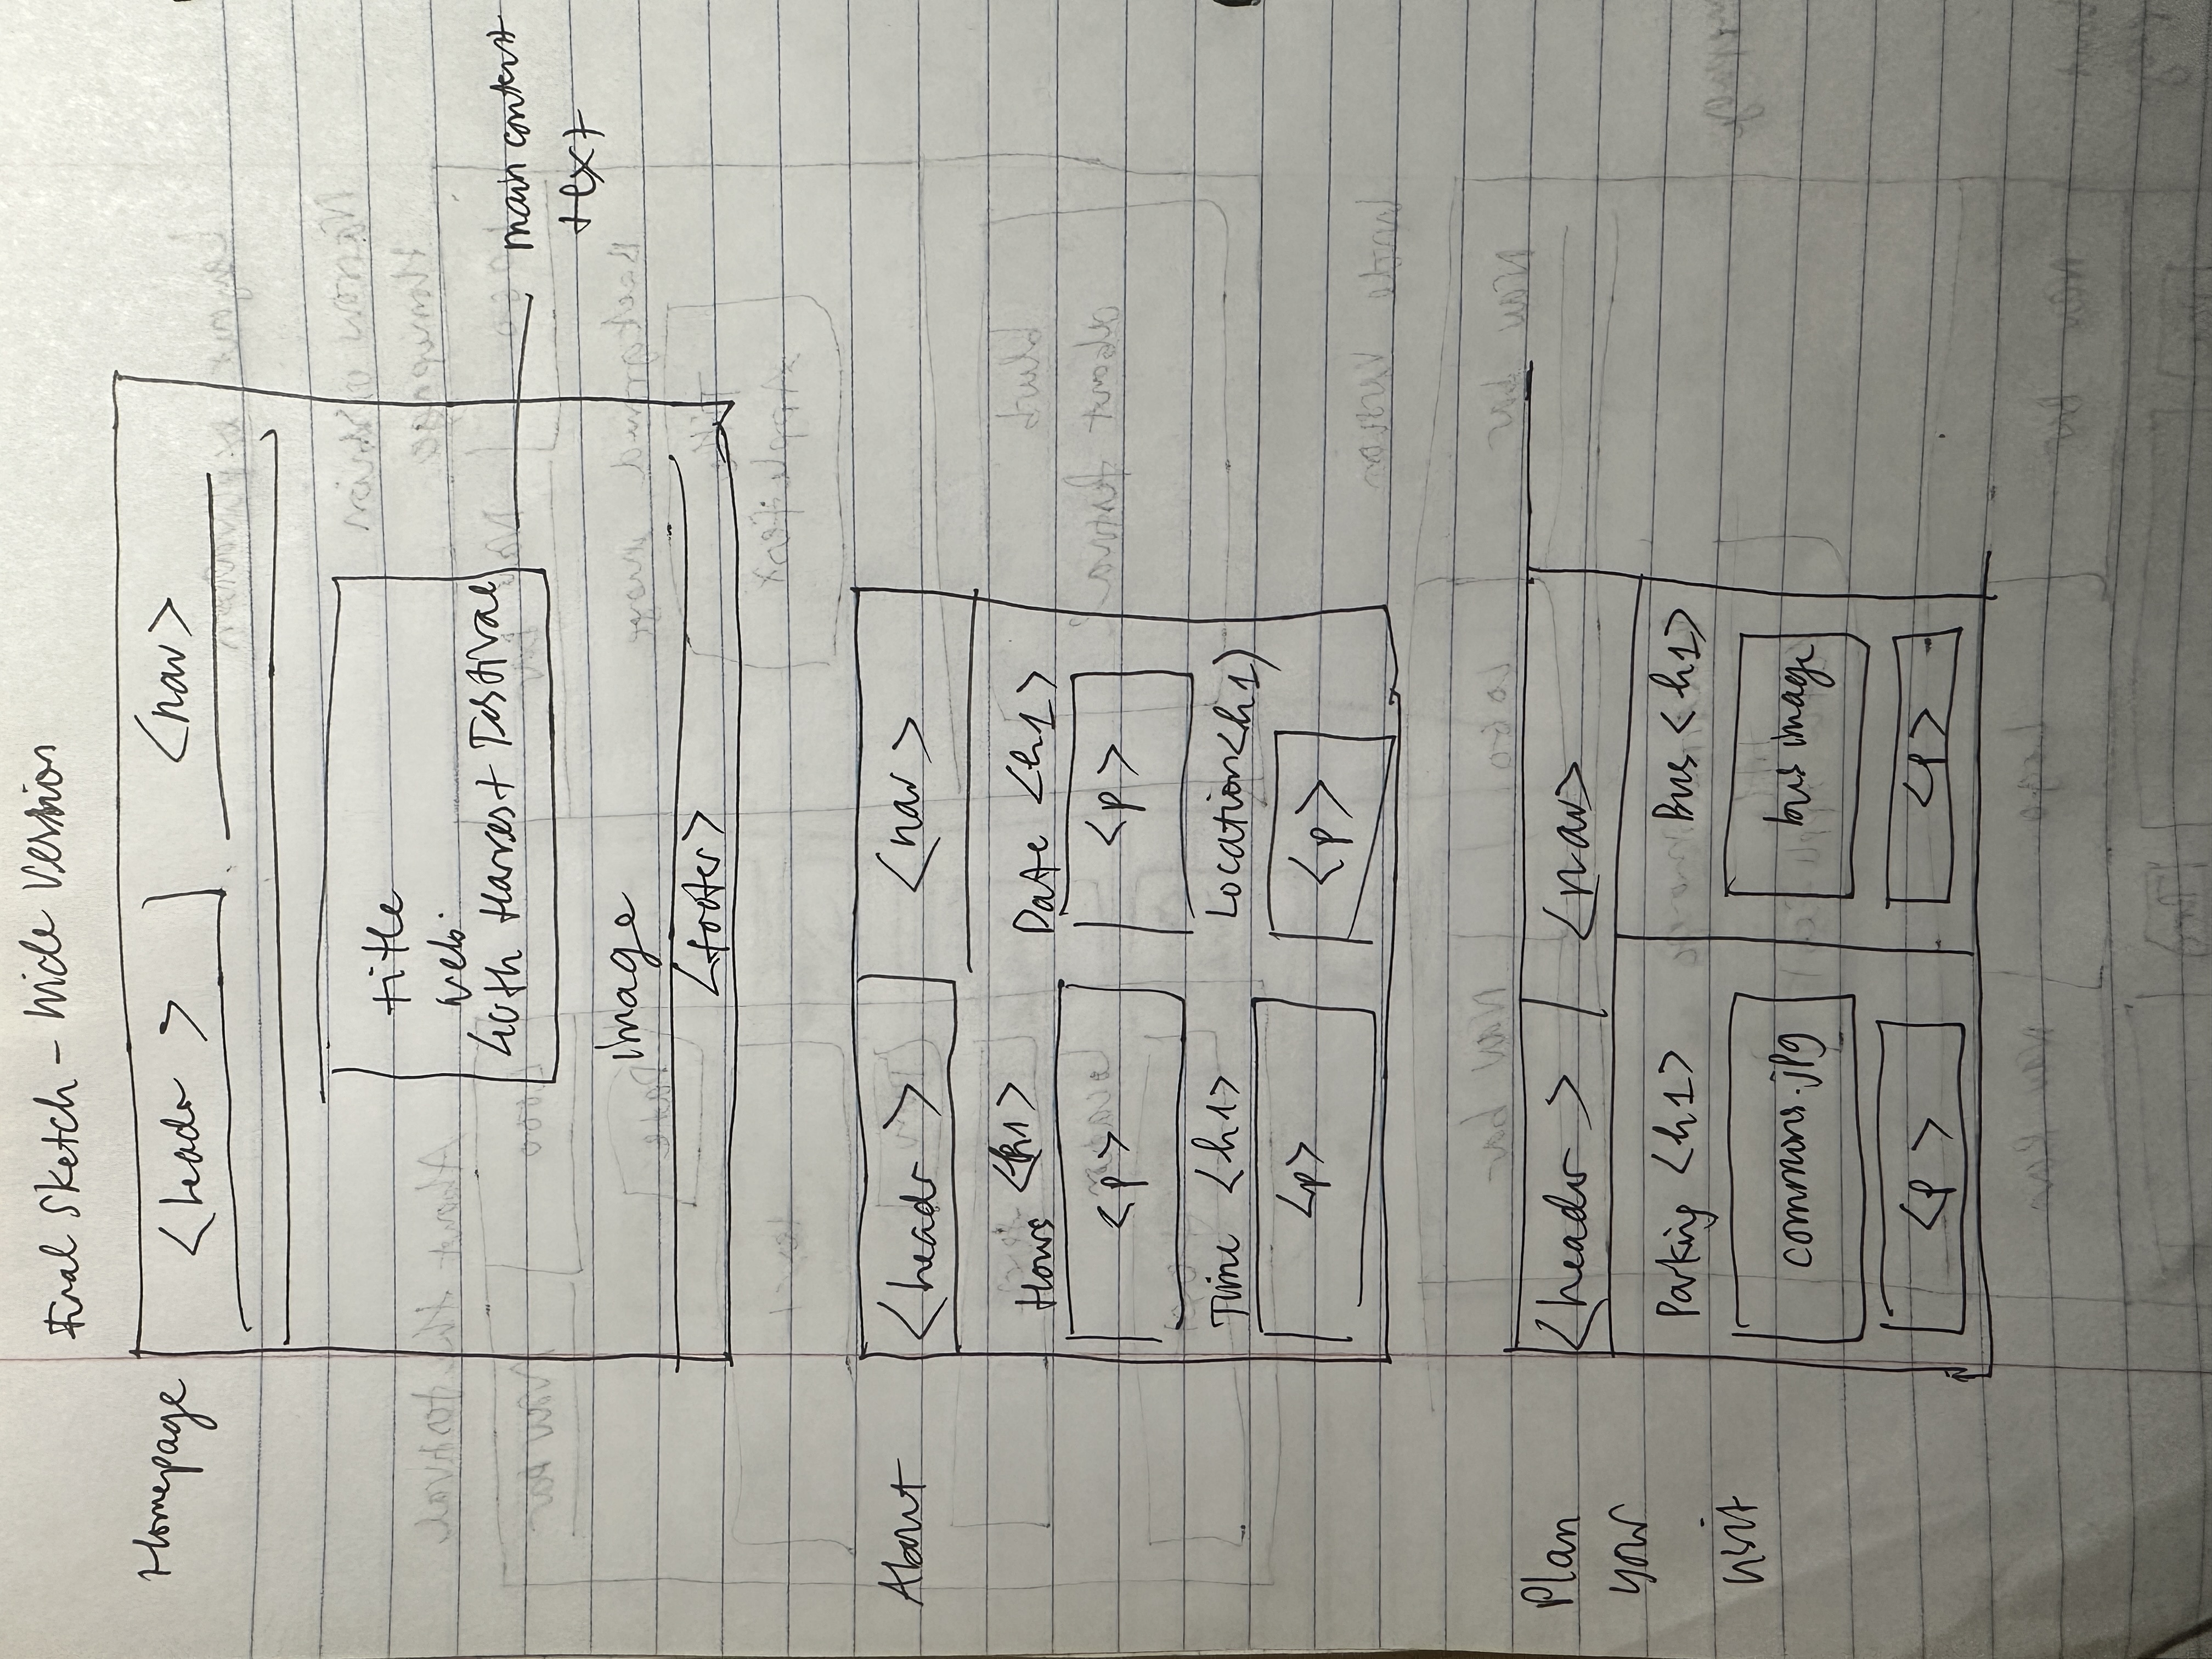 Final Sketch - Wide Version
Homepage
<header >
<nav>
title
web:
40th Harvest Festival
main content
text
image
<footer>
About
<header >
<nav>
Hours <h1>
Date <h1>
<p>
<p>
Time <h1>
Location <h1)
<p>
<p>
Plan
your
visit
<header >
<nav>
Parking <h1>
Bus <h1>
commons.jpg
bus image
<p >
<p>